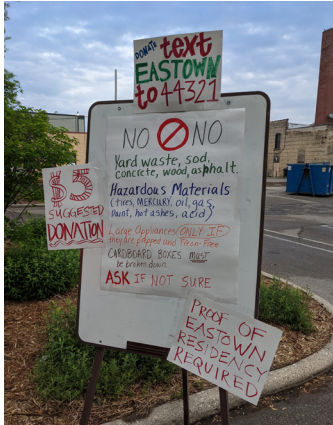 DONATE text
EASTOWN
to 44321
NO NO
Yard waste, sod,
concrete, wood, asphalt.
Hazardous Materials
(tires, MERCURY, oil, gas,
paint, hot ashes, acid)
Large Appliances (ONLY IF
they are capped and Freon-Free
CARDBOARD BOXES must
be broken down
ASK IF NOT SURE
$3
SUGGESTED
DONATION
PROOF OF
EASTOWN
RESIDENCY
REQUIRED